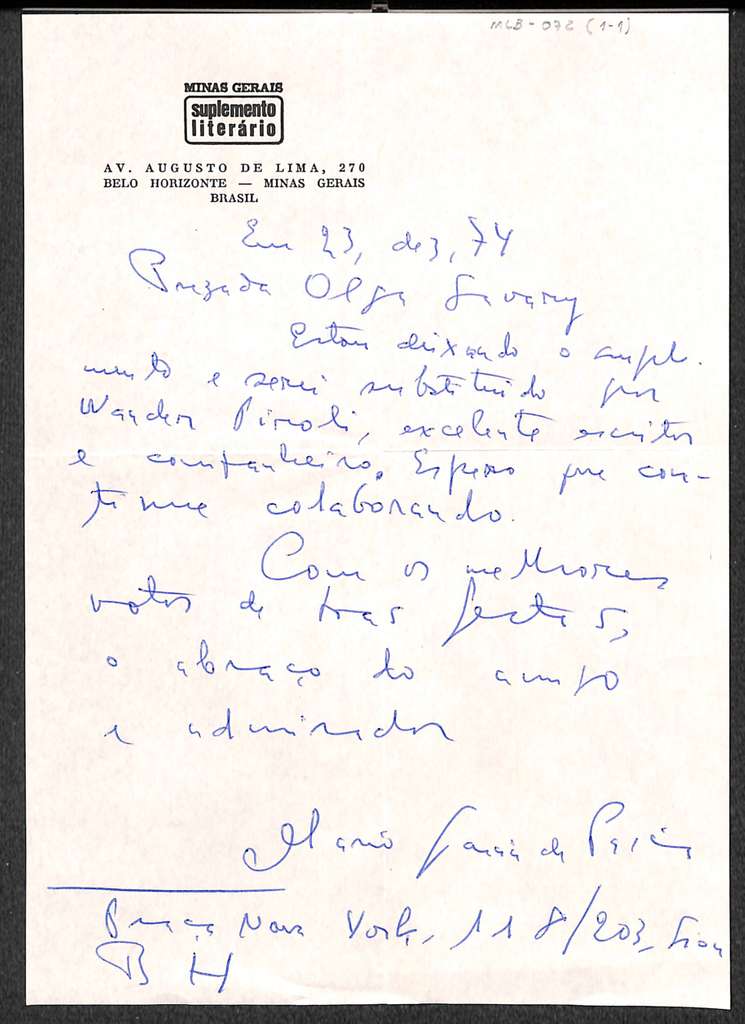 MLB-072 (1-1)
MINAS GERAIS
suplemento
literário
AV. AUGUSTO DE LIMA, 270
BELO HORIZONTE — MINAS GERAIS
BRASIL
Em 23, dez, 74
Prezada Olga Savary
Estou deixando o suple-
mento e serei substituido por
Wander Piroli, excelente escritor
e companheiro. Espero que con-
tinue colaborando.
Com os melhores
votos de boas festas,
o abraço do amigo
e admirador
Mario Garcia de Paiva
Praça Nova York, 118/203, Sion
BH